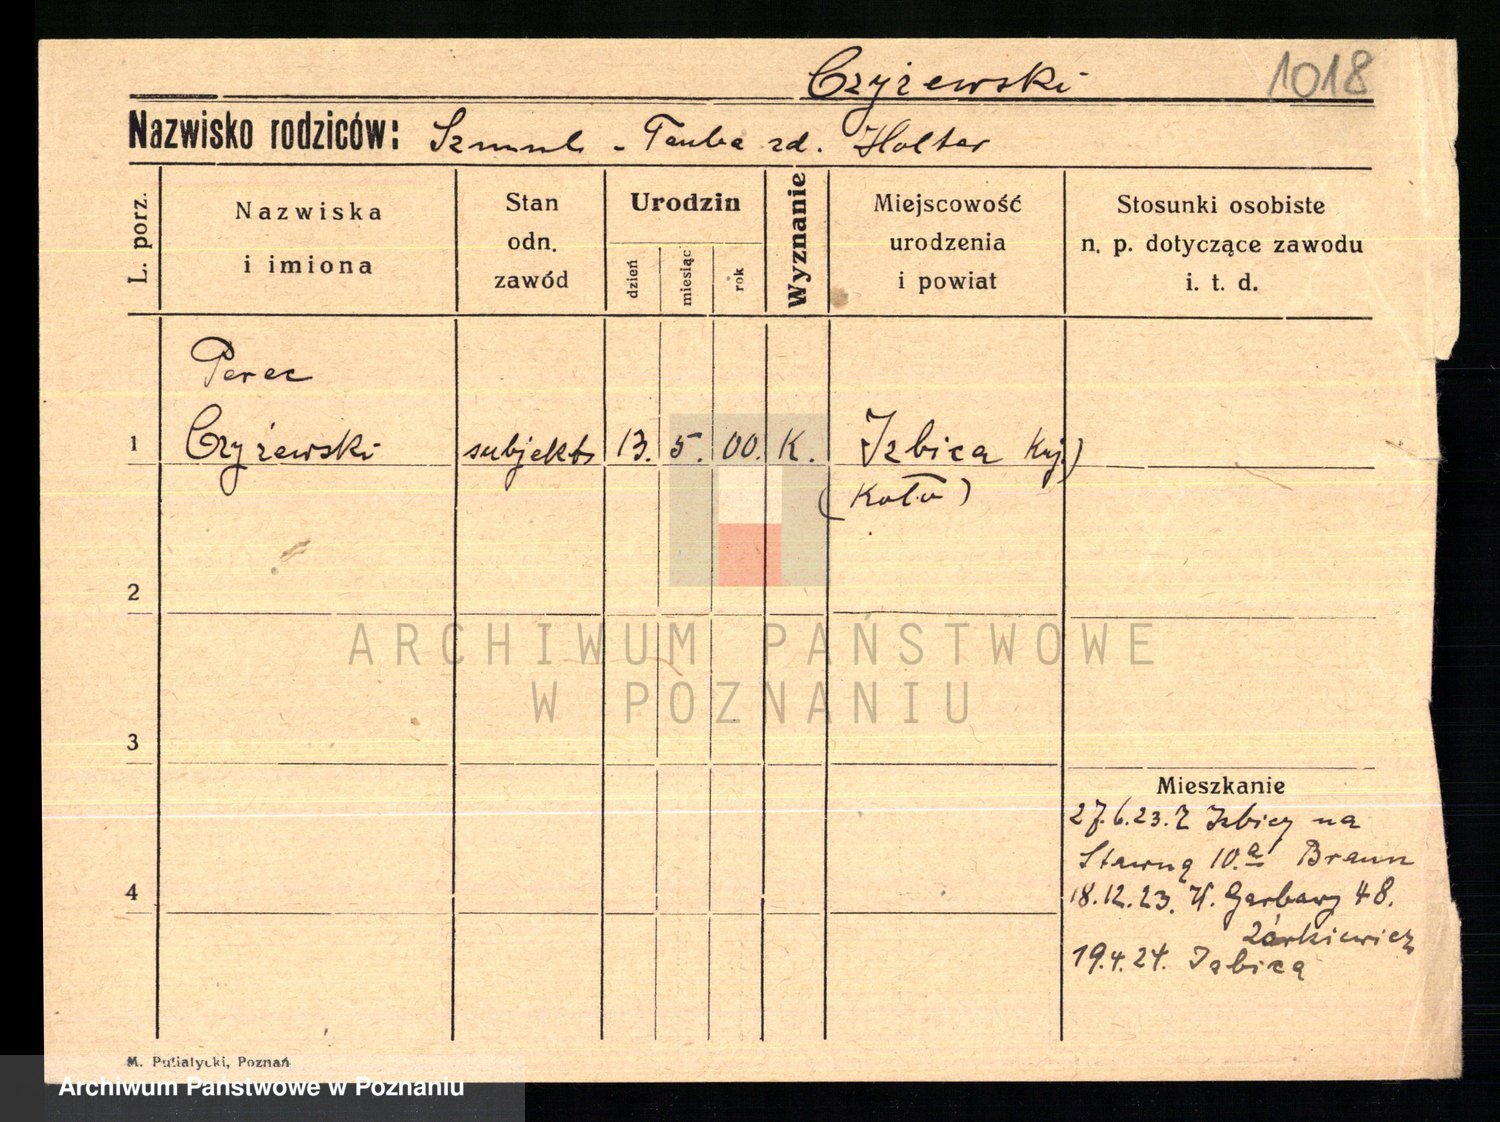 Czyżewski
1018
Nazwisko rodziców: Szmul - Tauba zd. Holtar
L. porz.
Nazwiska
i imiona
Stan
odn.
zawód
Urodzin
dzień
miesiąc
rok
Wyznanie
Miejscowość
urodzenia
i powiat
Stosunki osobiste
n. p. dotyczące zawodu
i. t. d.
Perec
1 Czyżewski subjekt 13. 5. 00. K. Izbica Kuj)
(Koło)
2
3
4
Mieszkanie
27.6.23. Z Izbicy na
Stawną 10.a Braun
18.12.23. W. Garbary 48.
Żórkiewicz
19.4.24. Izbica
ARCHIWUM PAŃSTWOWE
W POZNANIU
M. Putiatycki, Poznań
Archiwum Państwowe w Poznaniu